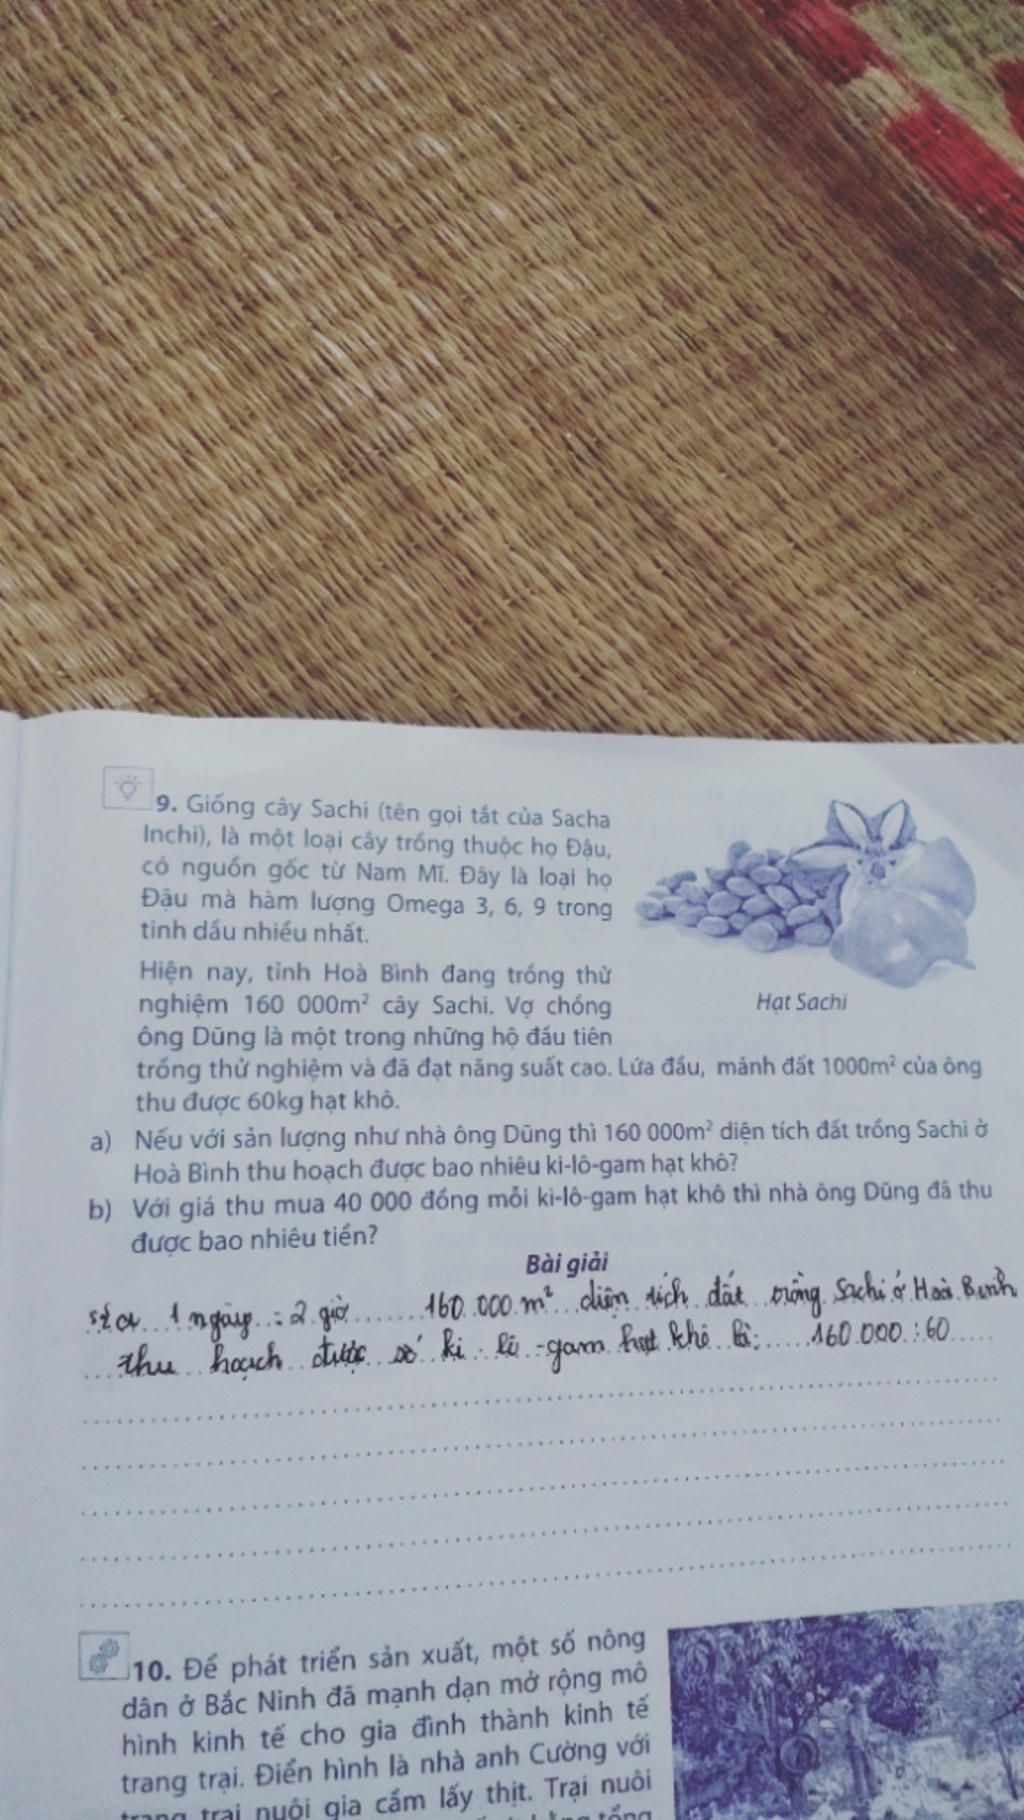 9. Giống cây Sachi (tên gọi tắt của Sacha
Inchi), là một loại cây trồng thuộc họ Đậu,
có nguồn gốc từ Nam Mĩ. Đây là loại họ
Đậu mà hàm lượng Omega 3, 6, 9 trong
tinh dầu nhiều nhất.
Hiện nay, tỉnh Hoà Bình đang trồng thử
nghiệm 160 000m² cây Sachi. Vợ chồng
ông Dũng là một trong những hộ đầu tiên
trồng thử nghiệm và đã đạt năng suất cao. Lứa đầu, mảnh đất 1000m² của ông
thu được 60kg hạt khô.
Hạt Sachi
a) Nếu với sản lượng như nhà ông Dũng thì 160 000m² diện tích đất trồng Sachi ở
Hoà Bình thu hoạch được bao nhiêu ki-lô-gam hạt khô?
b) Với giá thu mua 40 000 đồng mỗi ki-lô-gam hạt khô thì nhà ông Dũng đã thu
được bao nhiêu tiền?
Bài giải
1 ngày : 2 giờ 160.000 m² diện tích đất trồng Sachi ở Hoà Bình
thu hoạch được số ki-lô-gam hạt khô là: 160.000 : 60
10. Để phát triển sản xuất, một số nông
dân ở Bắc Ninh đã mạnh dạn mở rộng mô
hình kinh tế cho gia đình thành kinh tế
trang trại. Điển hình là nhà anh Cường với
trang trại nuôi gia cầm lấy thịt. Trại nuôi
tổng